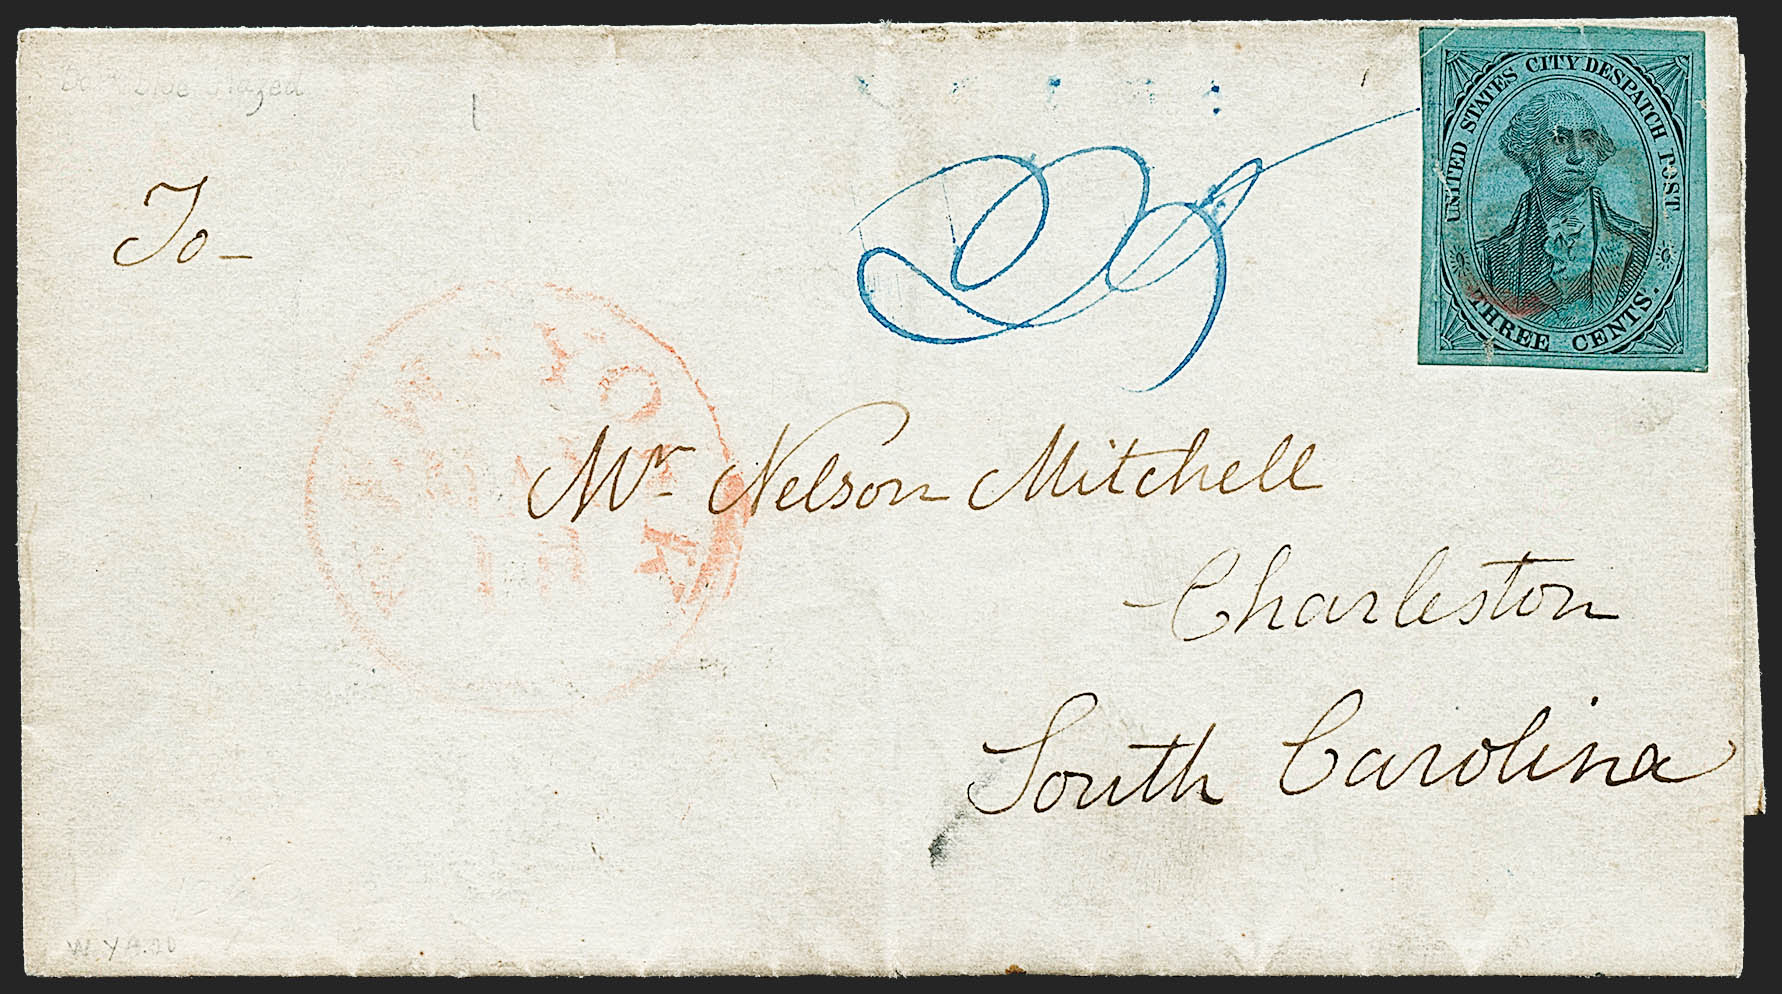 UNITED STATES CITY DESPATCH POST
THREE CENTS.
To-
NEW-YORK
MAY
Mr Nelson Mitchell
Charleston
South Carolina